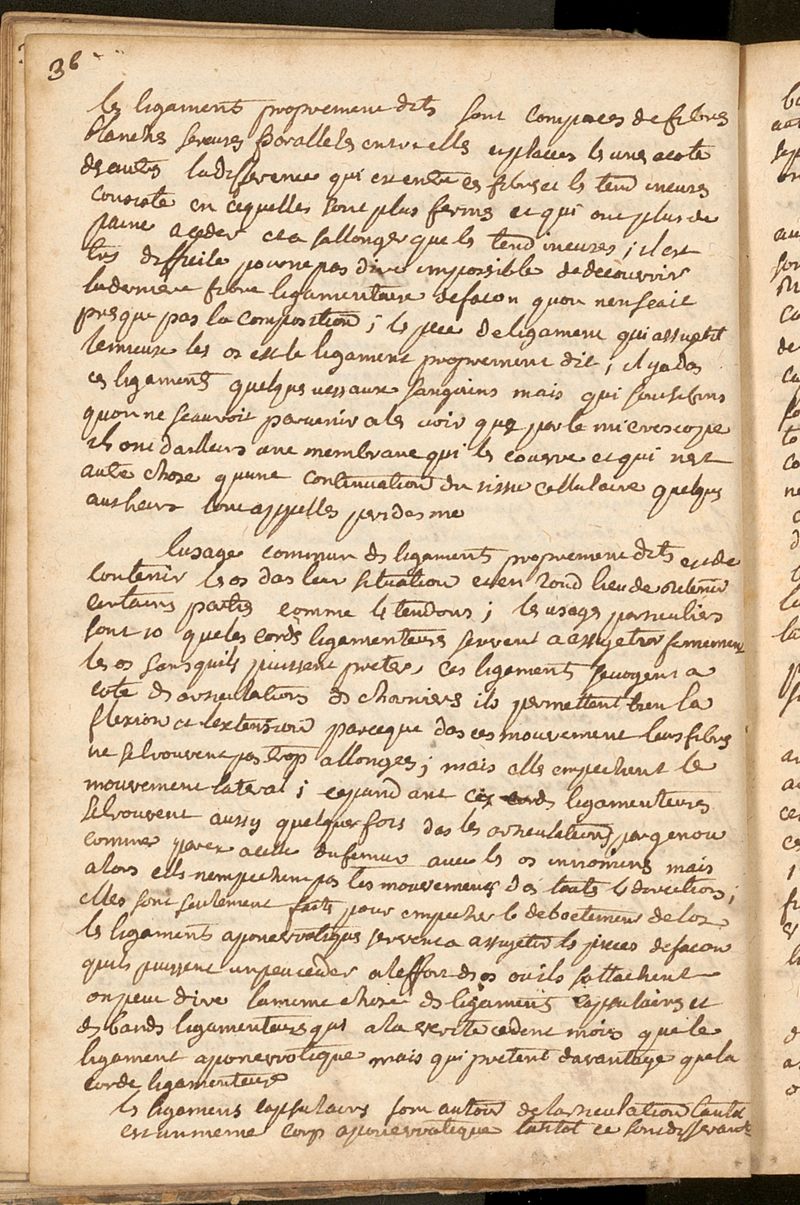 36
les ligaments proprement dits sont composes de fibres
blanches serrees paralleles entre elles et places les unes a cote
des autres la difference qui est entre ces fibres et les tendineuses
consiste en cequelles sont plus fermes et qui ont plus de
paine a ceder et a sallonger que les tendineuses ; il est
tres difficile pour ne pas dire impossible de decouvrir
la derniere fibre ligamentaire de facon quon nen scait
presque pas la composition ; lespece de ligament qui assujetit
le mieux les os est le ligament proprement dit ; il y a das
ces ligaments quelques vessaux sanguins mais qui sont si fins
quon ne scauroit parvenir a les voir que par le microscope
ils ont dailleurs une membrane qui les couvre et qui nest
autre chose quune continuation du tissu cellulaire quelques
autheurs lont appellés peridesme
lusage commun des ligaments proprement dits est de
contenir les os das leur situation et en second lieu de retenir
certains parties comme les tendons ; les usages particuliers
sont 1o que les cordes ligamenteuses servent a assujetir fermement
les os sans quils puissent preter ces ligaments se voyent a
coté des articulations des charnieres ils permettent bien la
flexion et lextension parceque das ces mouvement leurs fibres
ne se trouvent pas trop allongees ; mais elle empechent le
mouvement lateral ; cependant ces cordes ligamenteuses
se trouvent aussy quelquesfois das les articulations par genou
comme par ex a celle du femur avec les os innominés mais
alors elles nempechent pas les mouvements das touts les directions ;
elles sont seulement faits pour empecher le deboetement de los
les ligaments aponevrotiques servent a assujetir les pieces de facon
quils puissent un peu ceder a leffort des os ou ils sattachent
on peut dire la meme chose des ligaments capsulaires et
des bands ligamenteuses qui a la verité cedent mois que le
ligament aponevrotique mais qui pretent davantage que la
corde ligamenteuse
les ligamens capsulairs sont autour de larticulation tantot
cest un meme corp aponevrotique tantot ce sont differants